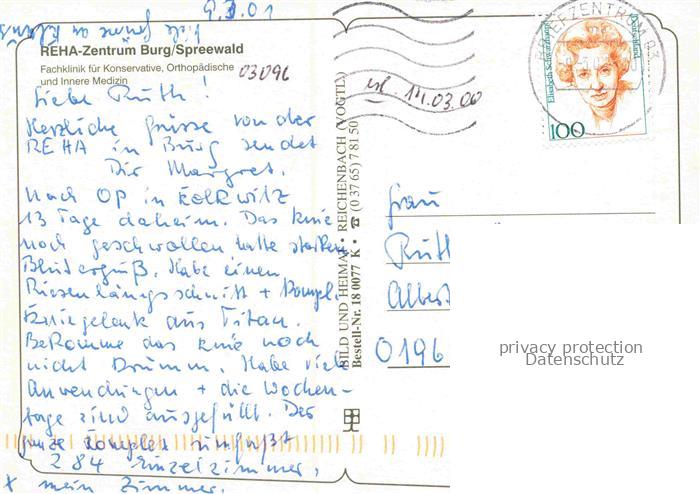 9.3.01
viele Grüße an Klaus
REHA-Zentrum Burg/Spreewald
Fachklinik für Konservative, Orthopädische
und Innere Medizin
03096
Liebe Ruth!
Herzliche Grüsse von der
REHA in Burg sendet
Dir Margret.
Nach OP in Kolkwitz
13 Tage daheim. Das Knie
noch geschwollen hatte starken
Bluterguß. Habe einen
Riesenlängsschnitt + kompl.
Kniegelenk aus Titan.
Bekomme das Knie noch
nicht krumm. Habe viele
Anwendungen + die Wochen-
tage sind ausgefüllt. Der
ganze Komplex umfaßt
284 Einzelzimmer,
x mein Zimmer.
BILD UND HEIMAT • REICHENBACH (VOGTL)
Bestell-Nr. 18 0077 K • ☎ (0 37 65) 7 81 50
erl. 14.03.00
BRIEFZENTRUM 03
Elisabeth Schwarzhaupt
Deutschland
100
Frau
Ruth
Albert
0196
privacy protection
Datenschutz